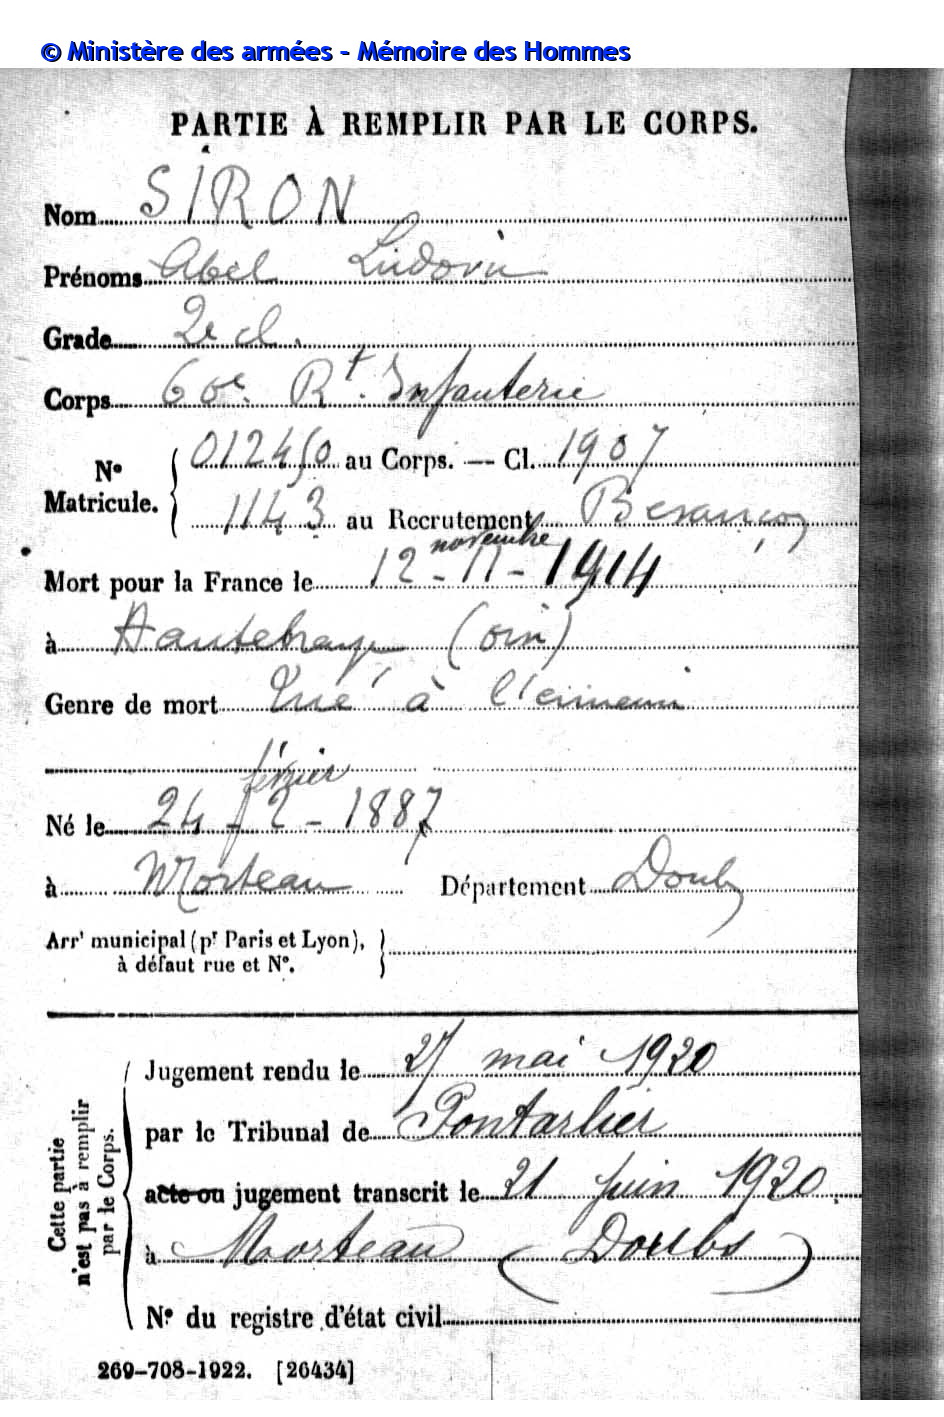 © Ministère des armées - Mémoire des Hommes
PARTIE À REMPLIR PAR LE CORPS.
Nom SIRON
Prénoms Abel Ludovic
Grade 2e cl.
Corps 60e Rt. Infanterie
N° Matricule. 012450 au Corps. — Cl. 1907
1143 au Recrutement Besançon
novembre
Mort pour la France le 12 - 11 - 1914
à Hautebraye (oise)
Genre de mort Tué à l'ennemi
février
Né le 24 - 2 - 1887
à Morteau Département Doubs
Arrt municipal (pr Paris et Lyon),
à défaut rue et N°.
Cette partie n'est pas à remplir par le Corps.
Jugement rendu le 27 mai 1920
par le Tribunal de Pontarlier
acte ou jugement transcrit le 21 juin 1920
à Morteau (Doubs)
N° du registre d'état civil
269-708-1922. [26434]